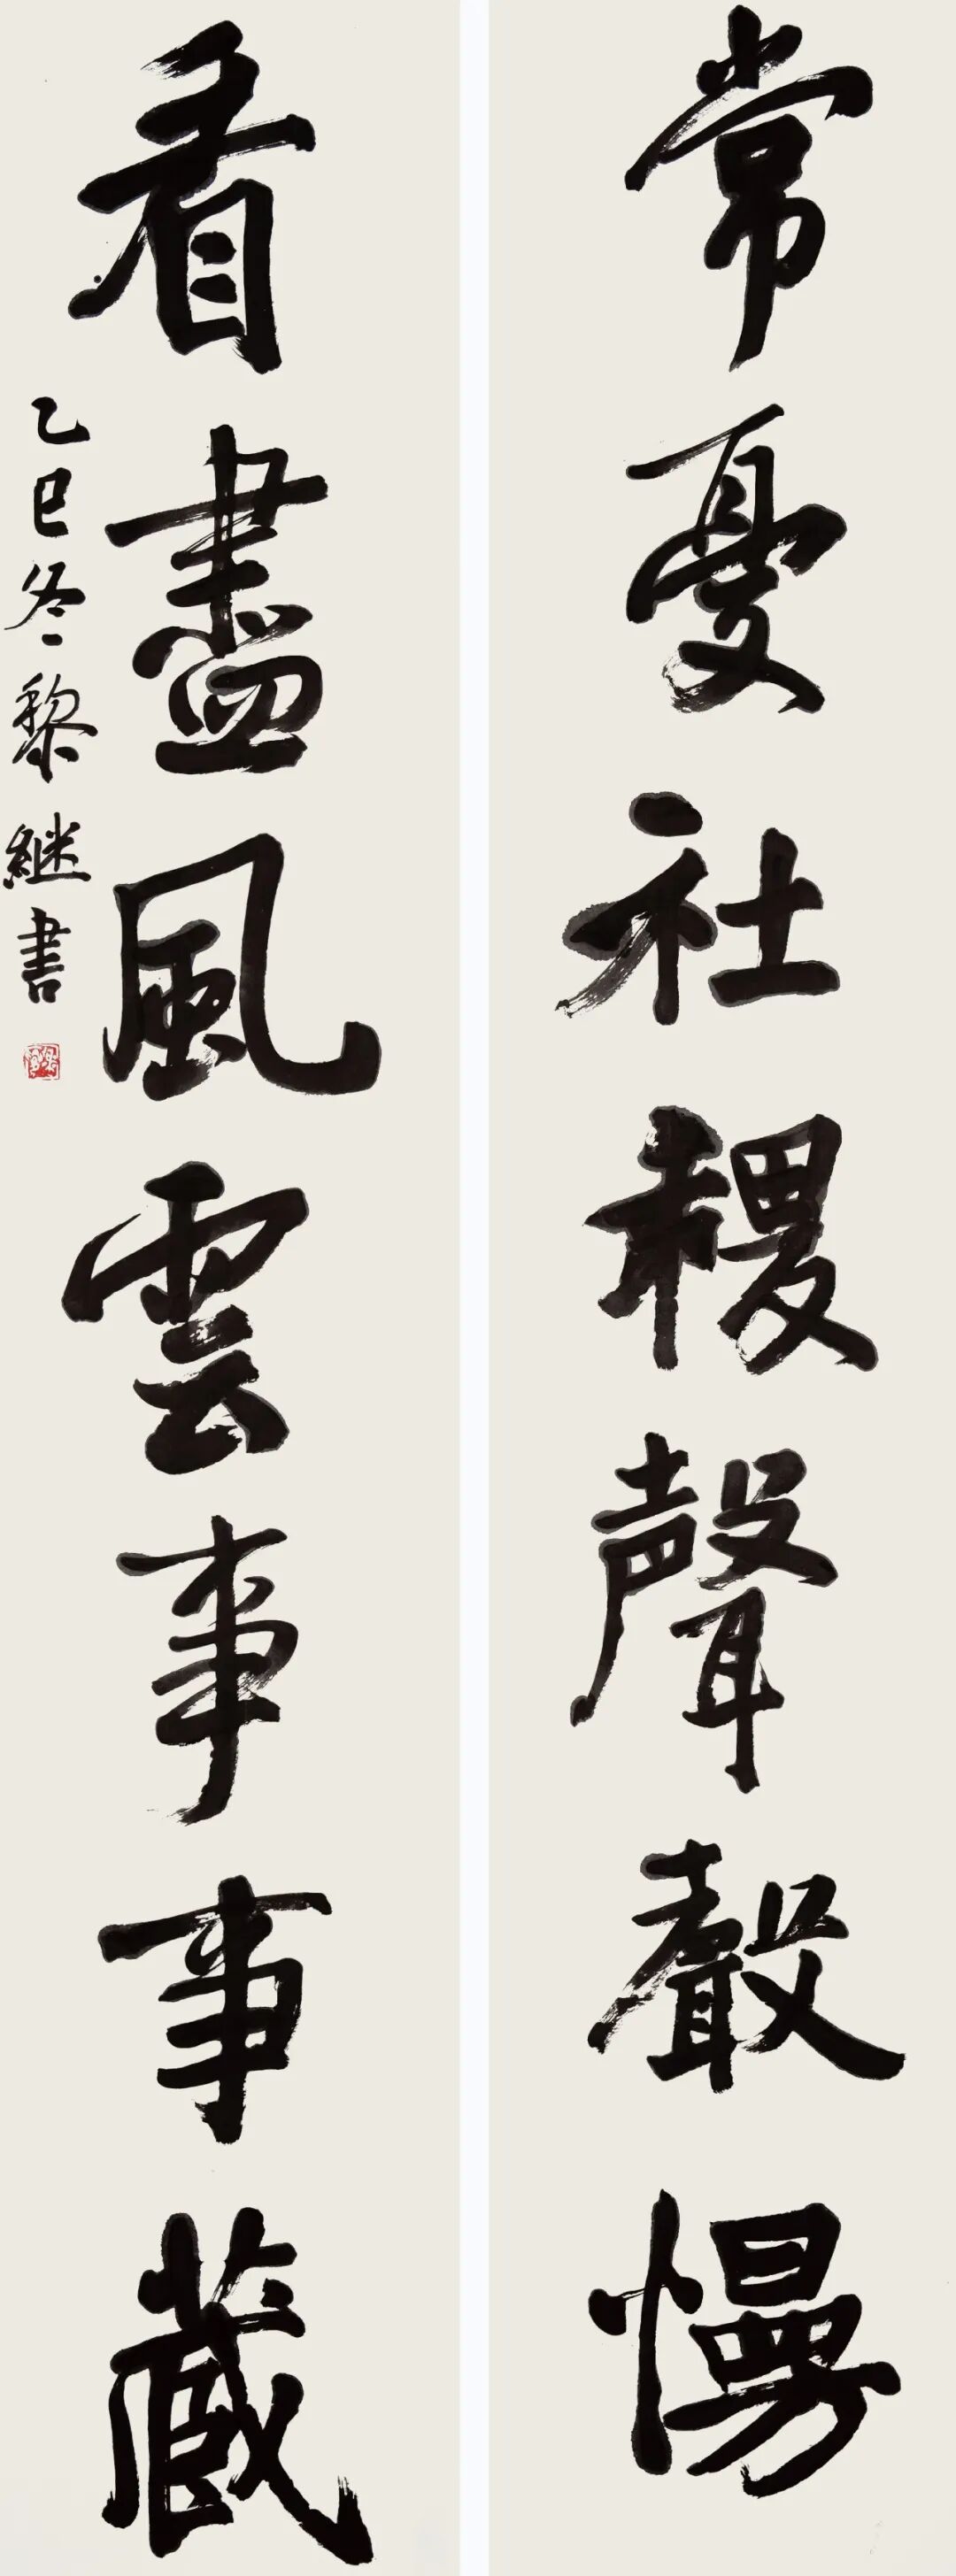 常憂社稷聲聲慢
看盡風雲事事藏
乙巳冬黎继書